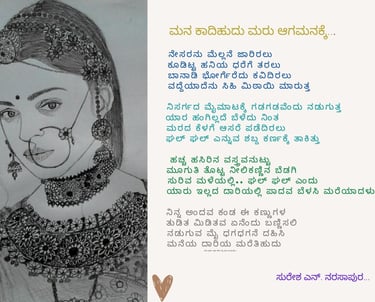 ಮನ ಕಾದಿಹುದು ಮರು ಆಗಮನಕ್ಕೆ...
ನೇಸರನು ಮೆಲ್ಲನೆ ಜಾರಿರಲು
ಕೂಡಿಟ್ಟ ಹನಿಯ ಧರೆಗೆ ತರಲು
ಬಾನಾಡಿ ಭೋರ್ಗರೆದು ಕವಿದಿರಲು
ವದ್ದೆಯಾದೆನು ಸಿಹಿ ಮಿಠಾಯಿ ಮಾರುತ್ತ
ನಿಸರ್ಗದ ಮೈಮಾಟಕ್ಕೆ ಗಡಗಡವೆಂದು ನಡುಗುತ್ತ
ಯಾರ ಹಂಗಿಲ್ಲದೆ ಬೆಳೆದು ನಿಂತ
ಮರದ ಕೆಳಗೆ ಆಸರೆ ಪಡೆದಿರಲು
ಘಲ್ ಘಲ್ ಎನ್ನುವ ಶಬ್ದ ಕರ್ಣಕ್ಕೆ ತಾಕಿತ್ತು
ಹಚ್ಚ ಹಸಿರಿನ ವಸ್ತ್ರವನುಟ್ಟು
ಮೂಗುತಿ ತೊಟ್ಟ ನೀಲಿಕಣ್ಣಿನ ಬೆಡಗಿ
ಸುರಿವ ಮಳೆಯಲ್ಲಿ.. ಘಲ್ ಘಲ್ ಎಂದು
ಯಾರು ಇಲ್ಲದ ದಾರಿಯಲ್ಲಿ ಪಾದವ ಬೆಳೆಸಿ ಮರೆಯಾದಳು
ನಿನ್ನ ಅಂದವ ಕಂಡ ಈ ಕಣ್ಣುಗಳ
ತುಡಿತ ಮಿಡಿತವ ಏನೆಂದು ಬಣ್ಣಿಸಲಿ
ನಡುಗುವ ಮೈ ಧಗಧಗನೆ ದಹಿಸಿ
ಮನೆಯ ದಾರಿಯ ಮರೆತಿಹುದು
ಸುರೇಶ ಎನ್. ನರಸಾಪುರ...